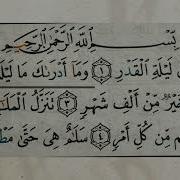 بِسْمِ اللَّهِ الرَّحْمَٰنِ الرَّحِيمِ
لَيْلَةِ الْقَدْرِ ١ وَمَا أَدْرَىٰكَ مَا لَيْلَةُ
خَيْرٌ مِّنْ أَلْفِ شَهْرٍ ٣ تَنَزَّلُ الْمَلَ
مِّن كُلِّ أَمْرٍ ٤ سَلَٰمٌ هِيَ حَتَّىٰ مَطْ